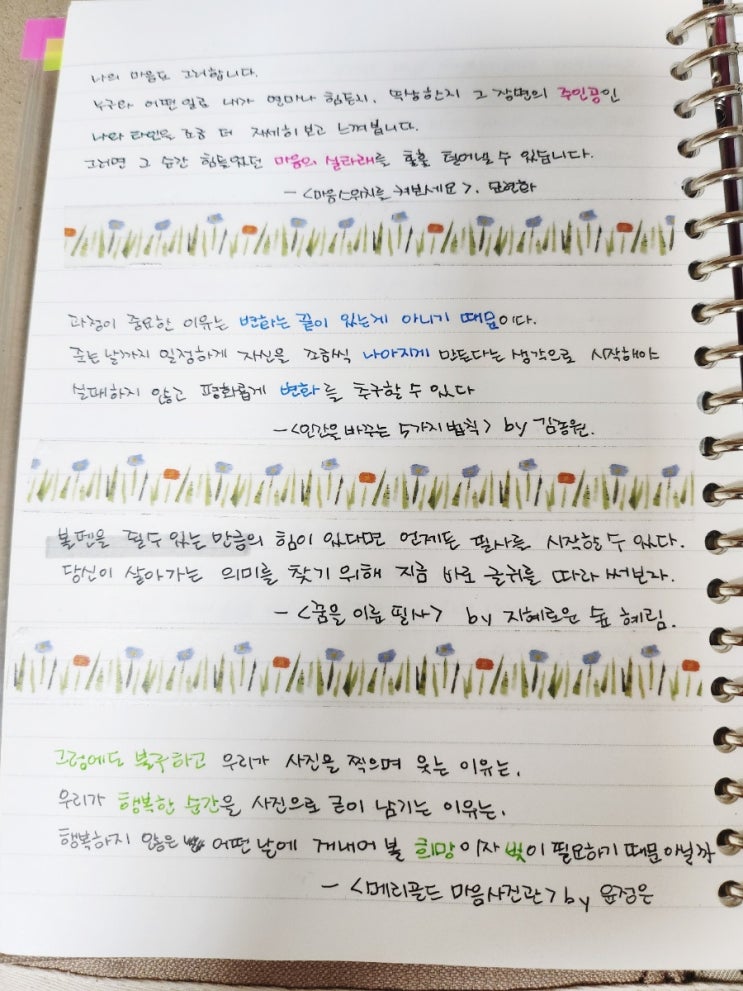 나의 마음도 그러합니다.
누구와 어떤 일로 내가 얼마나 힘든지, 속상한지 그 장면의 주인공인
나와 타인을 조금 더 자세히 보고 느껴봅니다.
그러면 그 순간 힘들었던 마음의 실타래를 훌훌 털어낼 수 있습니다.
- <마음스위치를 켜보세요>.
과정이 중요한 이유는 변화는 끝이 있는게 아니기 때문이다.
죽는날까지 일정하게 자신을 조금씩 나아지게 만든다는 생각으로 시작해야
실패하지 않고 평화롭게 변화를 추구할 수 있다
- <인간을 바꾸는 5가지 법칙> by 김종원.
볼펜을 쥘 수 있는 만큼의 힘이 있다면 언제든 필사를 시작할 수 있다.
당신이 살아가는 의미를 찾기 위해 지금 바로 글귀를 따라 써보자.
- <꿈을 이룬 필사> by 지혜로운 숲 혜림.
그럼에도 불구하고 우리가 사진을 찍으며 웃는 이유는,
우리가 행복한 순간을 사진으로 굳이 남기는 이유는,
행복하지 않은 어떤 날에 꺼내어 볼 희망이자 빛이 필요하기 때문 아닐까
- <메리골드 마음사진관> by 윤정은